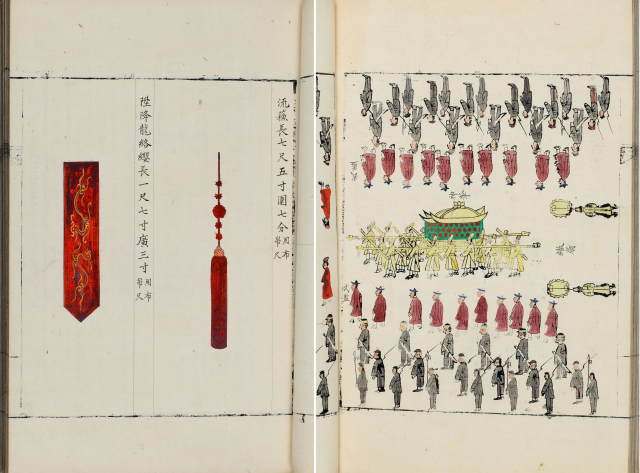 流蘓長七尺五寸圍七分用布帛尺
陞降龍絡纓長一尺七寸廣三寸用布帛尺